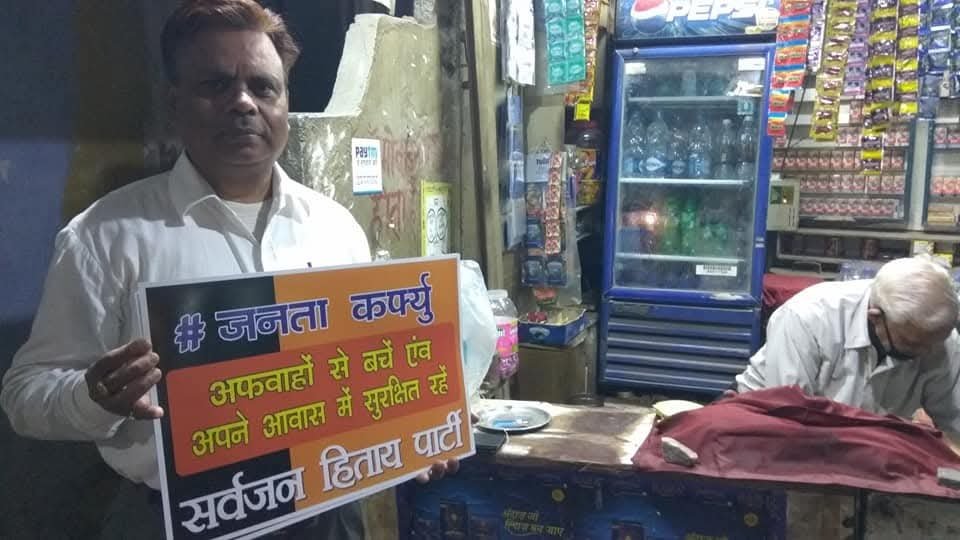 PEPSI
paytm
# जनता कर्फ्यु
अफवाहों से बचें एंव
अपने आवास में सुरक्षित रहें
सर्वजन हिताय पार्टी